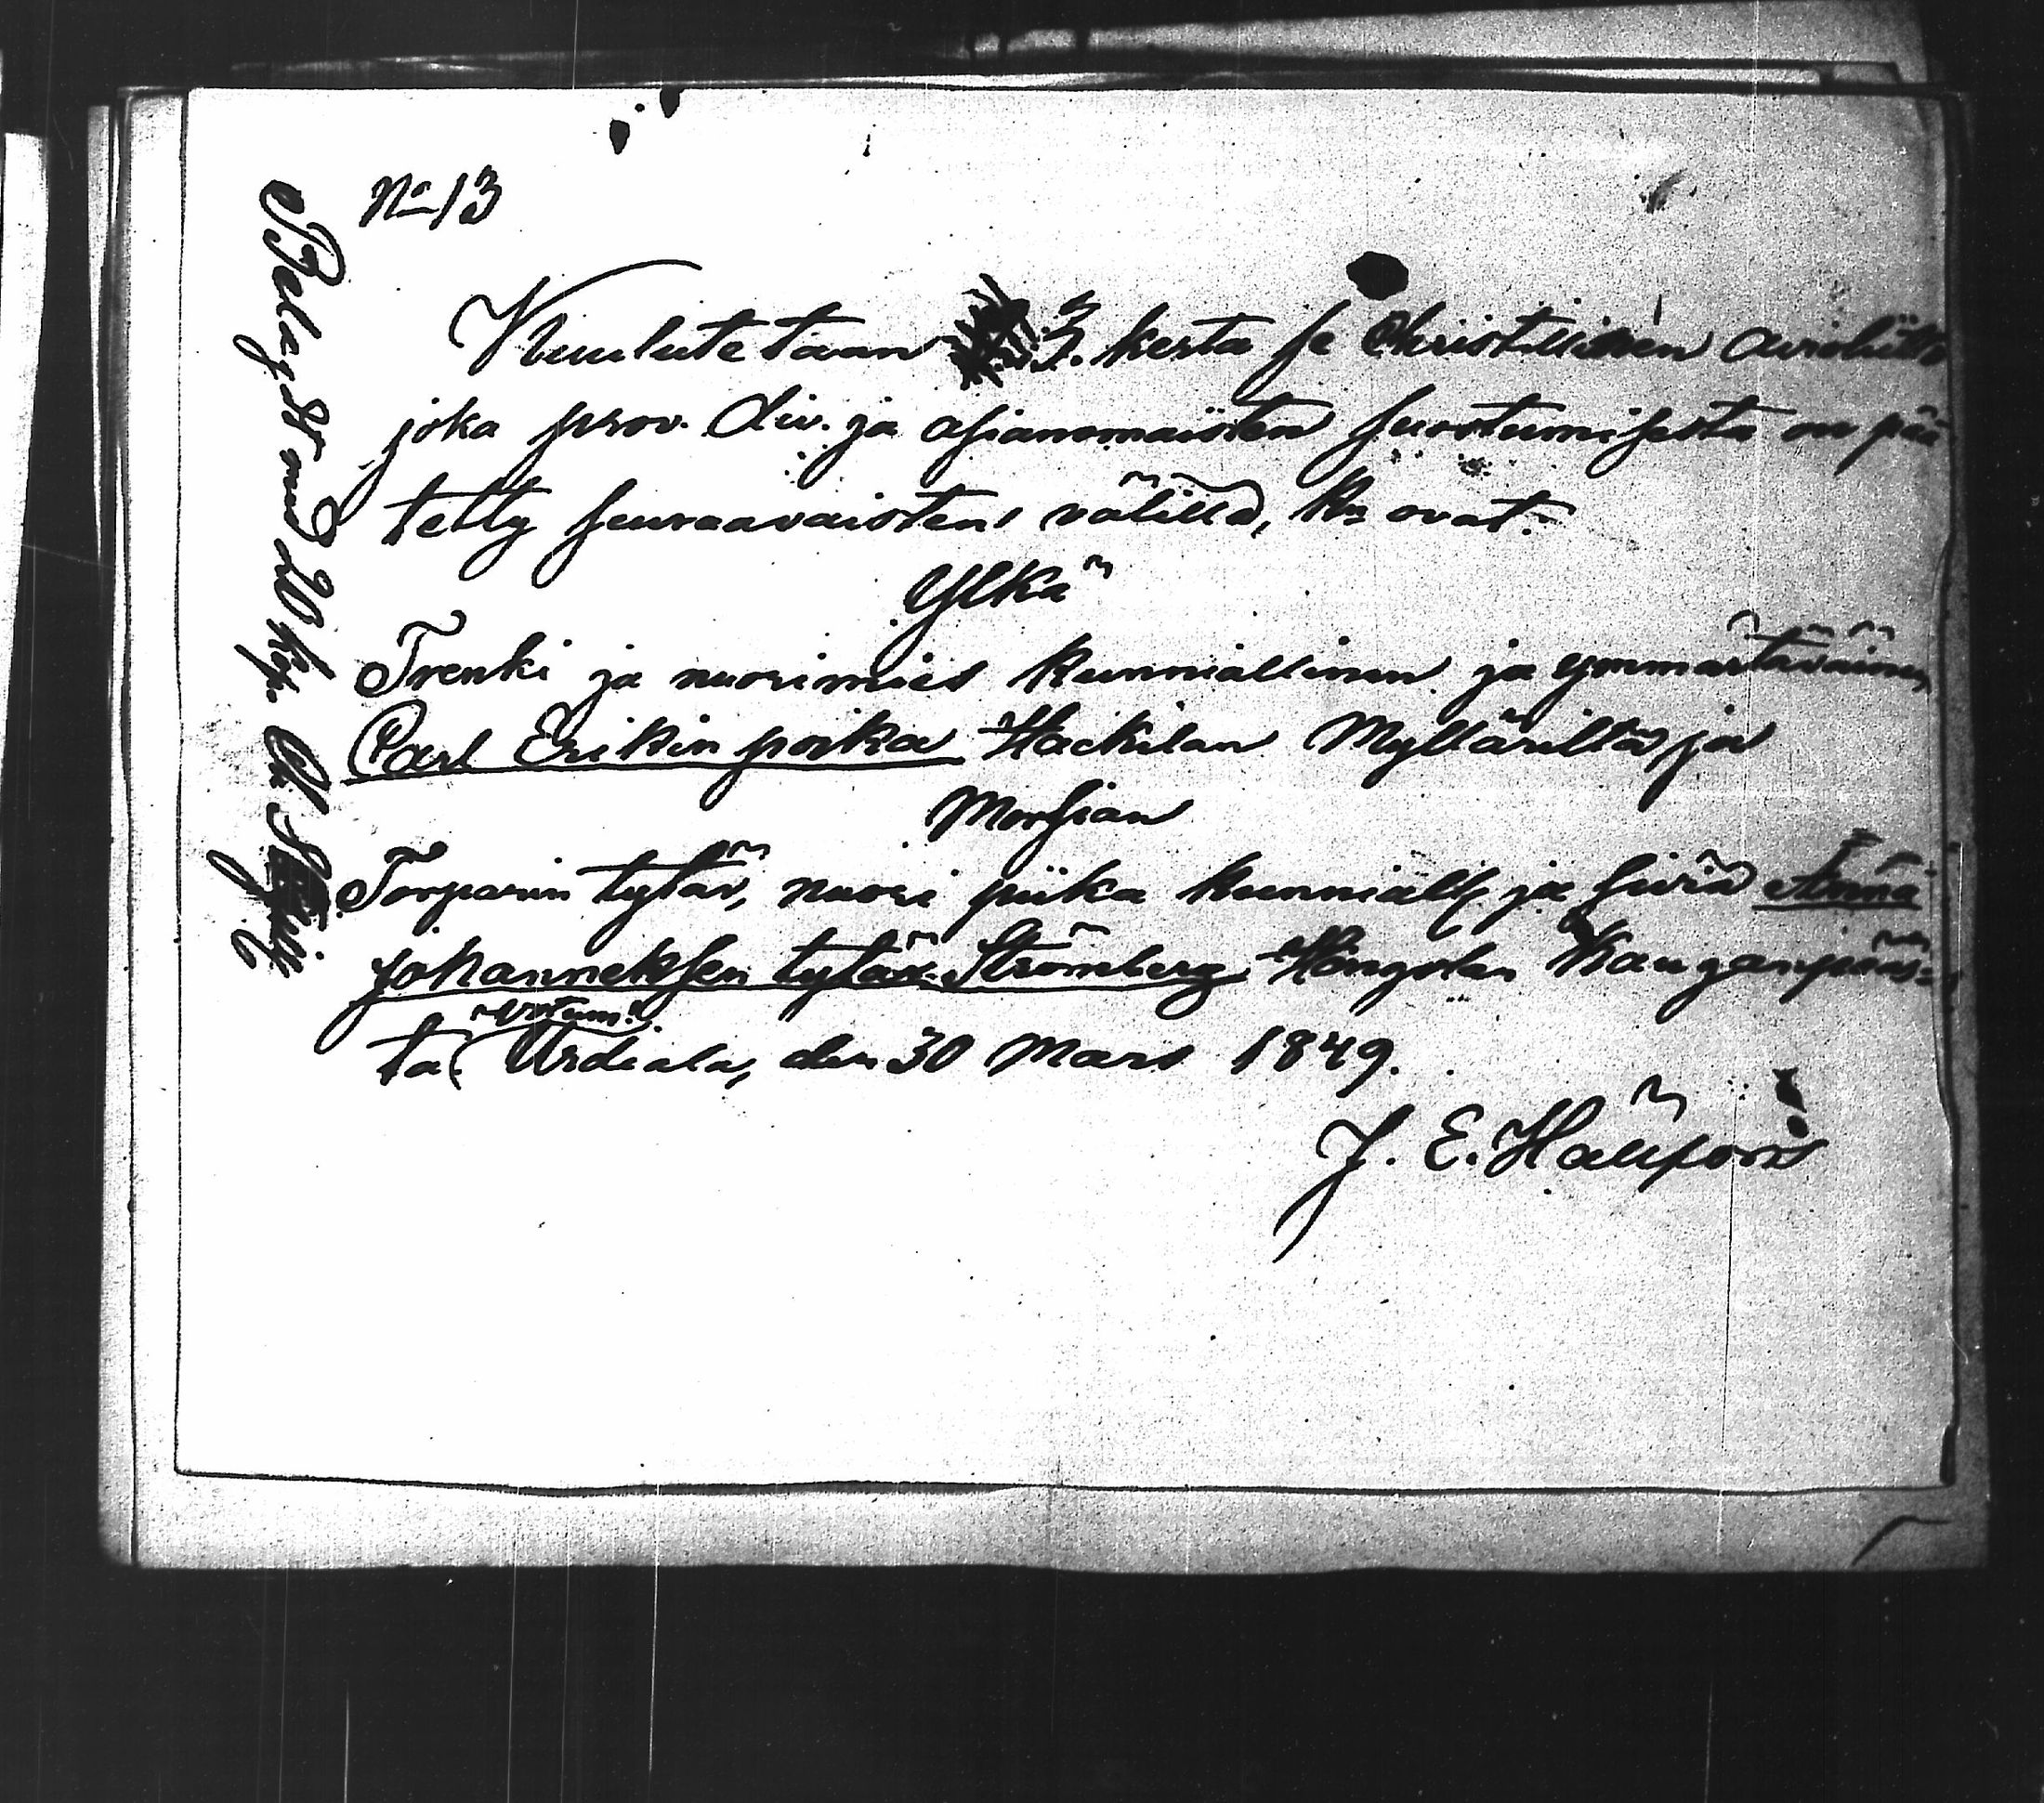 No 13
Kuulutetaan 3. kerta se Christillinen aviolitto
joka prov. div. ja asianmaisten suostumisesta on pää
tetty seuraavaisten välillä, kn ovat:
Ylkä
Trenki ja nuorimies kunniallinen ja ymmärtäväinen
Carl Erikin poika Hackilan Mylläriltä ja
Morsian
Torparin tytär, nuori piika kunniall. ja siviä Anna
Johanneksen tytär Strömberg Hongolan Kauganpääs-
ta (votum.
Urdiala, den 30 Mars 1849.
J. E. Hällfors
Belagdt med 20 kop. Ch. Sigill